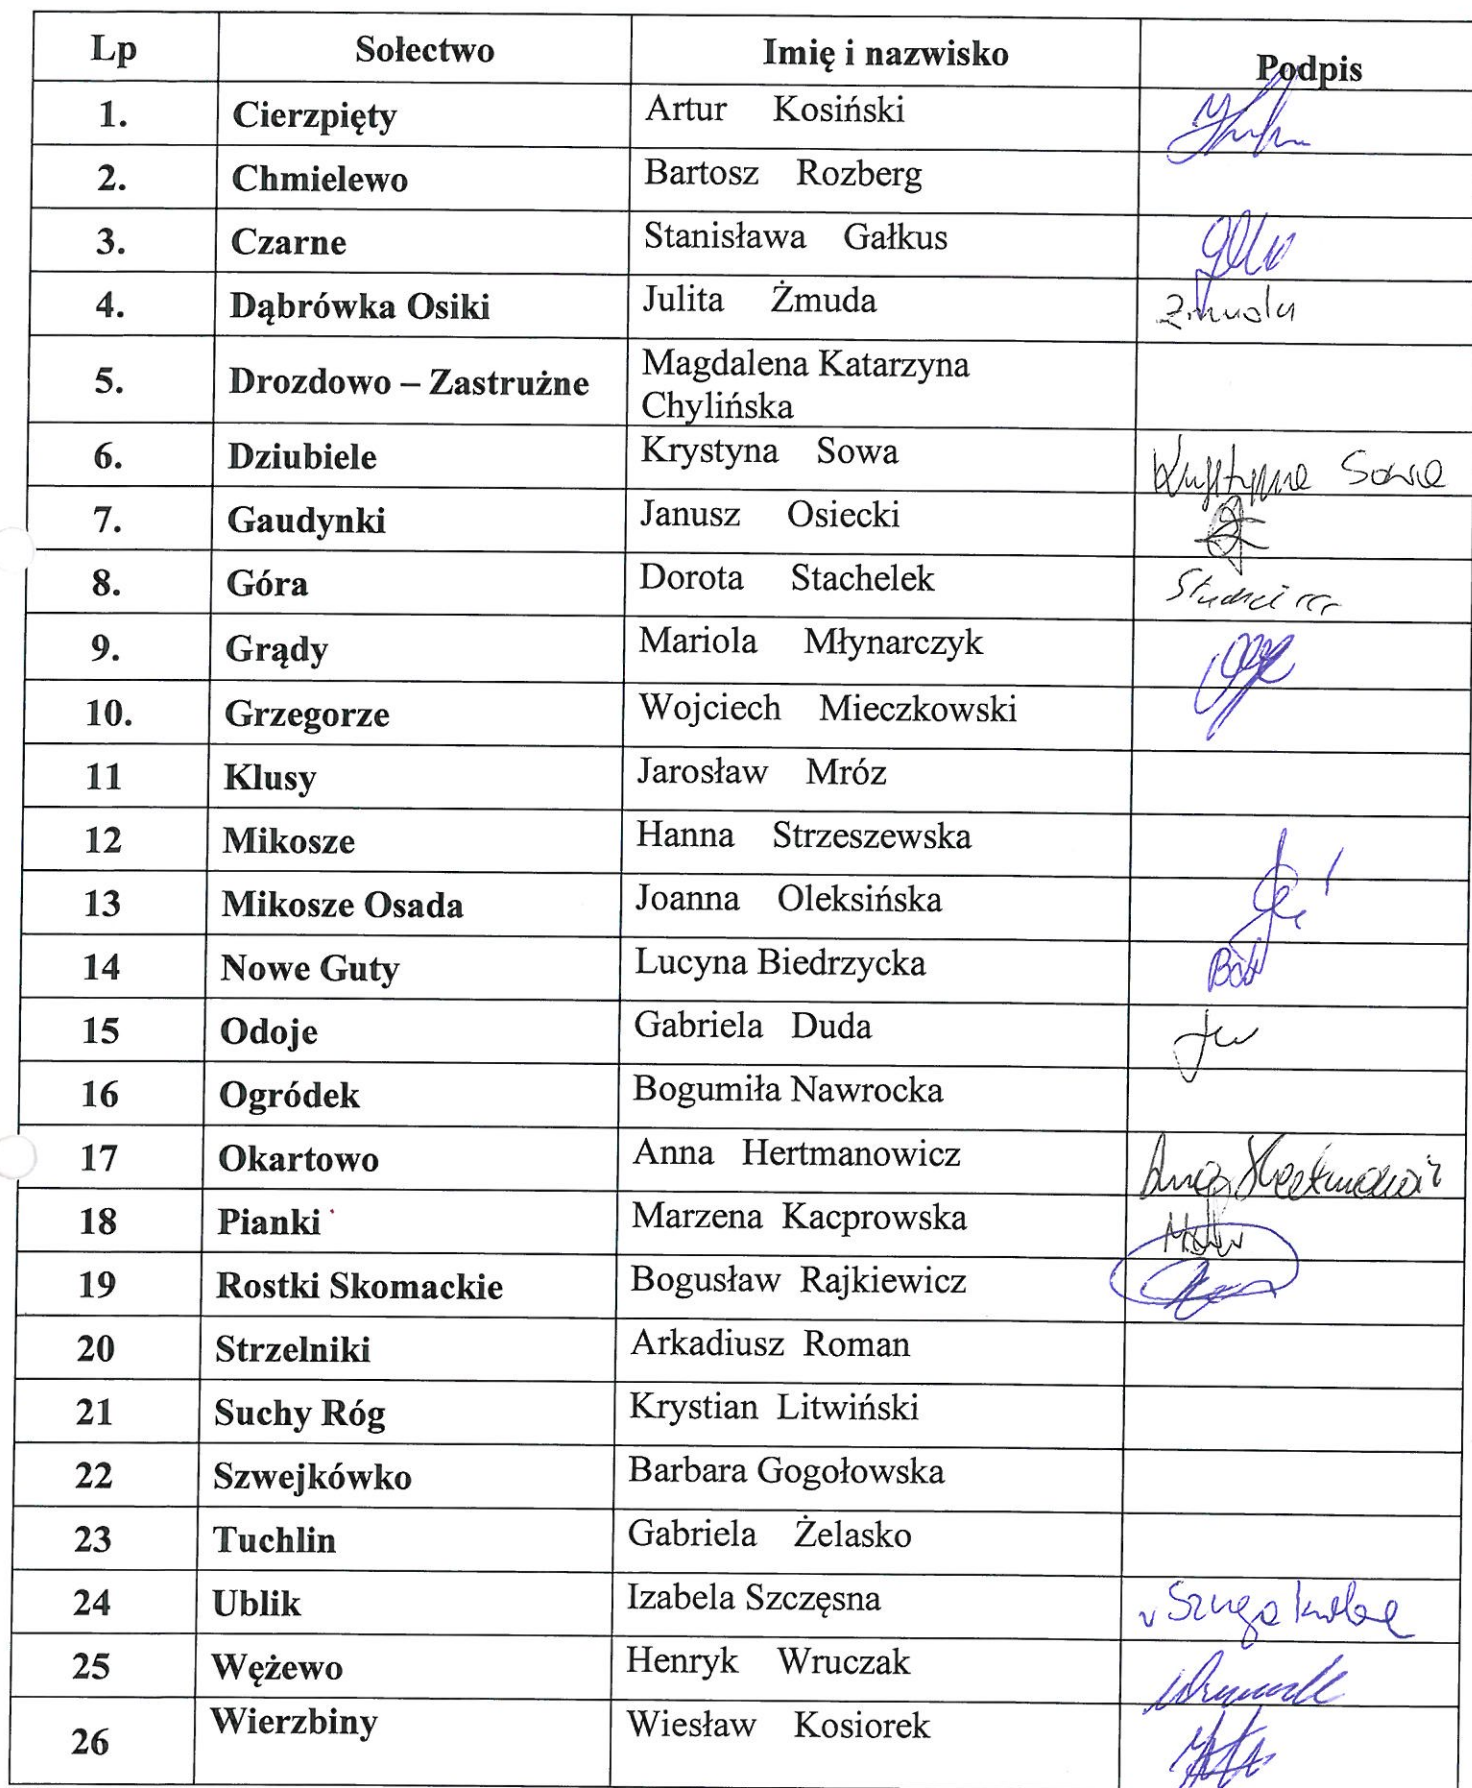 Lp Sołectwo Imię i nazwisko Podpis
1. Cierzpięty Artur Kosiński
2. Chmielewo Bartosz Rozberg
3. Czarne Stanisława Gałkus
4. Dąbrówka Osiki Julita Żmuda Żmuda
5. Drozdowo – Zastrużne Magdalena Katarzyna
Chylińska
6. Dziubiele Krystyna Sowa Krystyna Sowa
7. Gaudynki Janusz Osiecki
8. Góra Dorota Stachelek
9. Grądy Mariola Młynarczyk
10. Grzegorze Wojciech Mieczkowski
11 Klusy Jarosław Mróz
12 Mikosze Hanna Strzeszewska
13 Mikosze Osada Joanna Oleksińska
14 Nowe Guty Lucyna Biedrzycka
15 Odoje Gabriela Duda
16 Ogródek Bogumiła Nawrocka
17 Okartowo Anna Hertmanowicz Anna Hertmanowicz
18 Pianki Marzena Kacprowska
19 Rostki Skomackie Bogusław Rajkiewicz
20 Strzelniki Arkadiusz Roman
21 Suchy Róg Krystian Litwiński
22 Szwejkówko Barbara Gogołowska
23 Tuchlin Gabriela Żelasko
24 Ublik Izabela Szczęsna
25 Wężewo Henryk Wruczak
26 Wierzbiny Wiesław Kosiorek